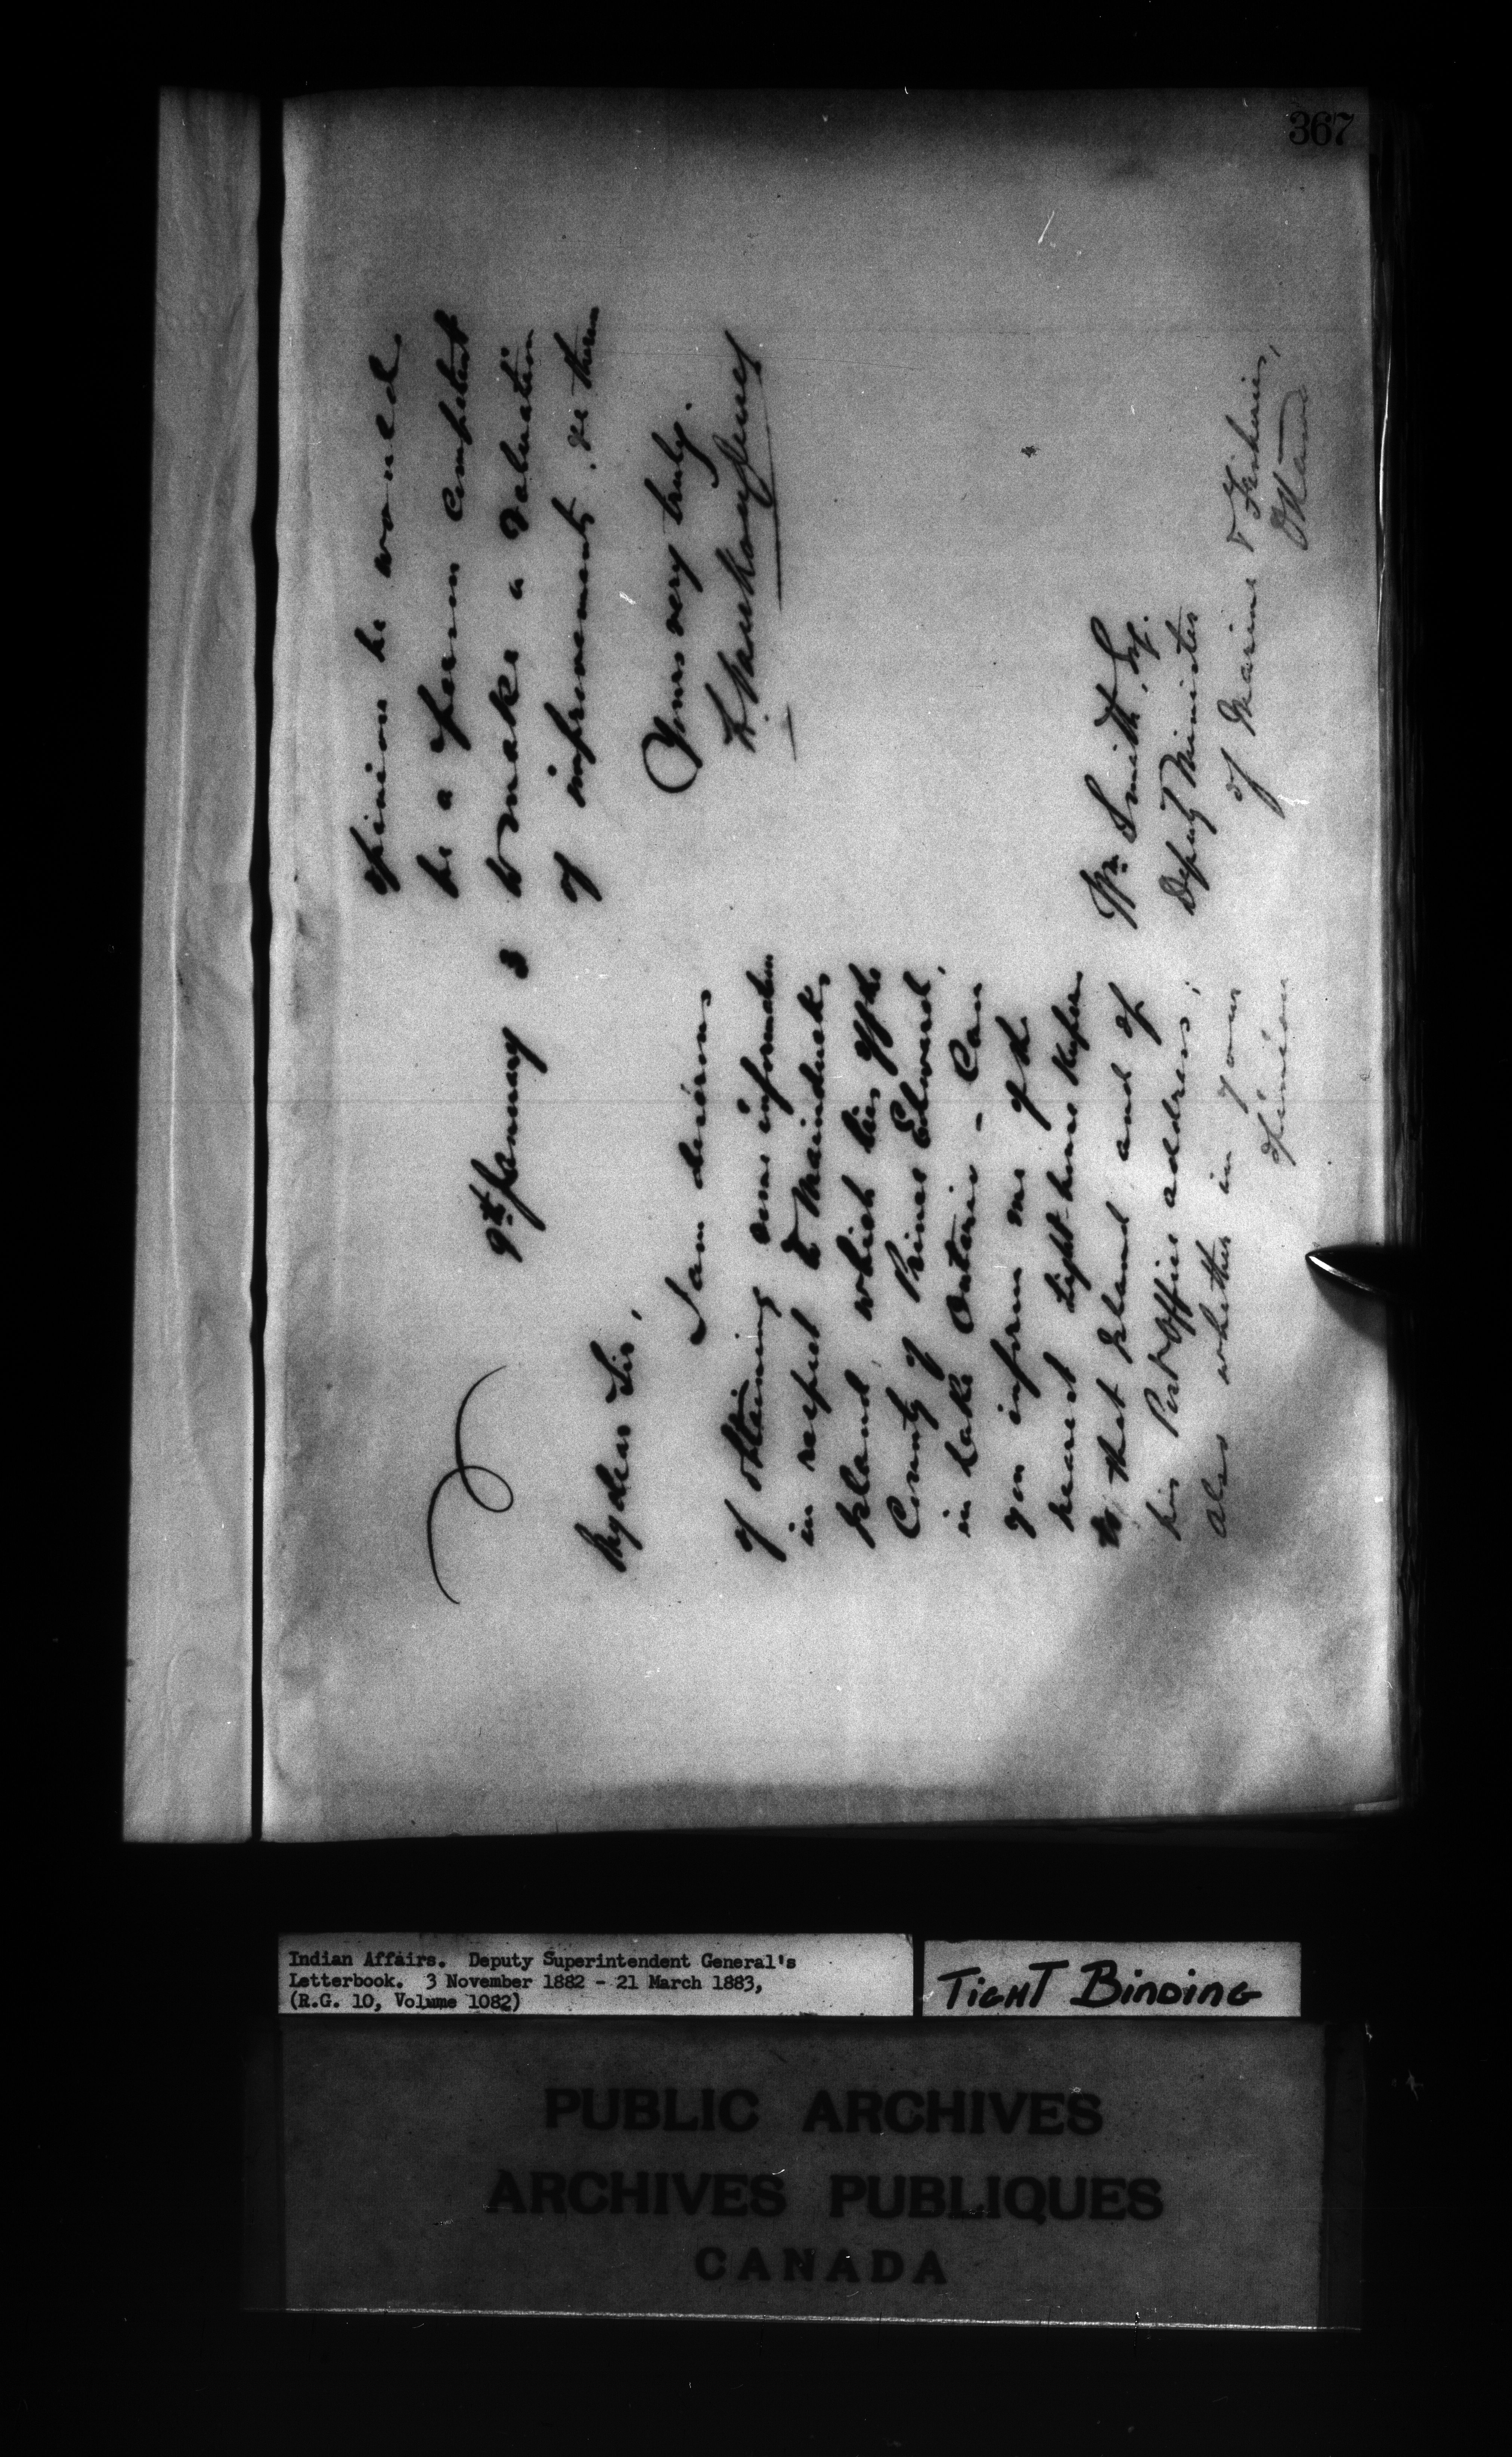 367
9th January 3
My dear Sir,
I am desirous
of obtaining some information
in respect to Mainducks
Island which lies off the
County of Prince Edward,
in Lake Ontario - Can
you inform me of the
nearest Light-house Keeper
to that Island and of
his Post Office address;
also whether in your
opinion
opinion he would
be a person competent
to make a valuation
of improvements, &c thereon
Yours very truly.
L. VanKoughnet
Wm. Smith, Esq.
Deputy Minister
of Marine & Fisheries,
Ottawa
Indian Affairs. Deputy Superintendent General's
Letterbook. 3 November 1882 - 21 March 1883,
(R.G. 10, Volume 1082)
TIGHT BINDING
PUBLIC ARCHIVES
ARCHIVES PUBLIQUES
CANADA